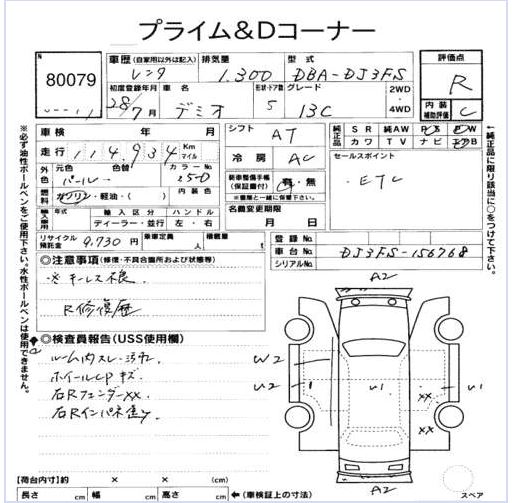 プライム&Dコーナー
No. 80079
車歴 (自家用以外は記入) レンタ
排気量 1.300
型式 DBA-DJ3FS
評価点 R
初度登録年月 28/7 月
車名 デミオ
形状・ドア数 5
グレード 13C
2WD・4WD
内装補助評価 C
車検 年 月
走行 114,934 Km マイル
シフト AT
冷房 AC
純正品 SR 純AW PS PW
カワ TV ナビ エアB
外色 元色 パール 色替 カラーNo. 25D
燃料 ガソリン・軽油・( )
新車整備手帳(保証書付) 有・無
※書類と一緒に保管して下さい。
セールスポイント
・ETC
輸入車用 年式 輸入区分 ハンドル
ディーラー・並行 左・右
名義変更期限 月 日
リサイクル預託金 9,730 円
乗車定員 人
積載量
登録No.
車台No. DJ3FS-156768
シリアルNo.
◎注意事項 (修復・不具合箇所および状態等)
※キーレス不良
R修復歴
◎検査員報告 (USS使用欄)
ルーム内スレ・汚れ
ホイールCPキズ
右RフェンダーXX
右Rインパネ焦げ
A2
W2
U2
U1
U1
XX
XX
A2
【荷台内寸】約 × ×
長さ cm 幅 cm 高さ cm ←(車検証上の寸法)
スペア
※必ず油性ボールペンをご使用下さい。水性ボールペンは使用できません。
←純正品に限り該当に○をつけて下さい。